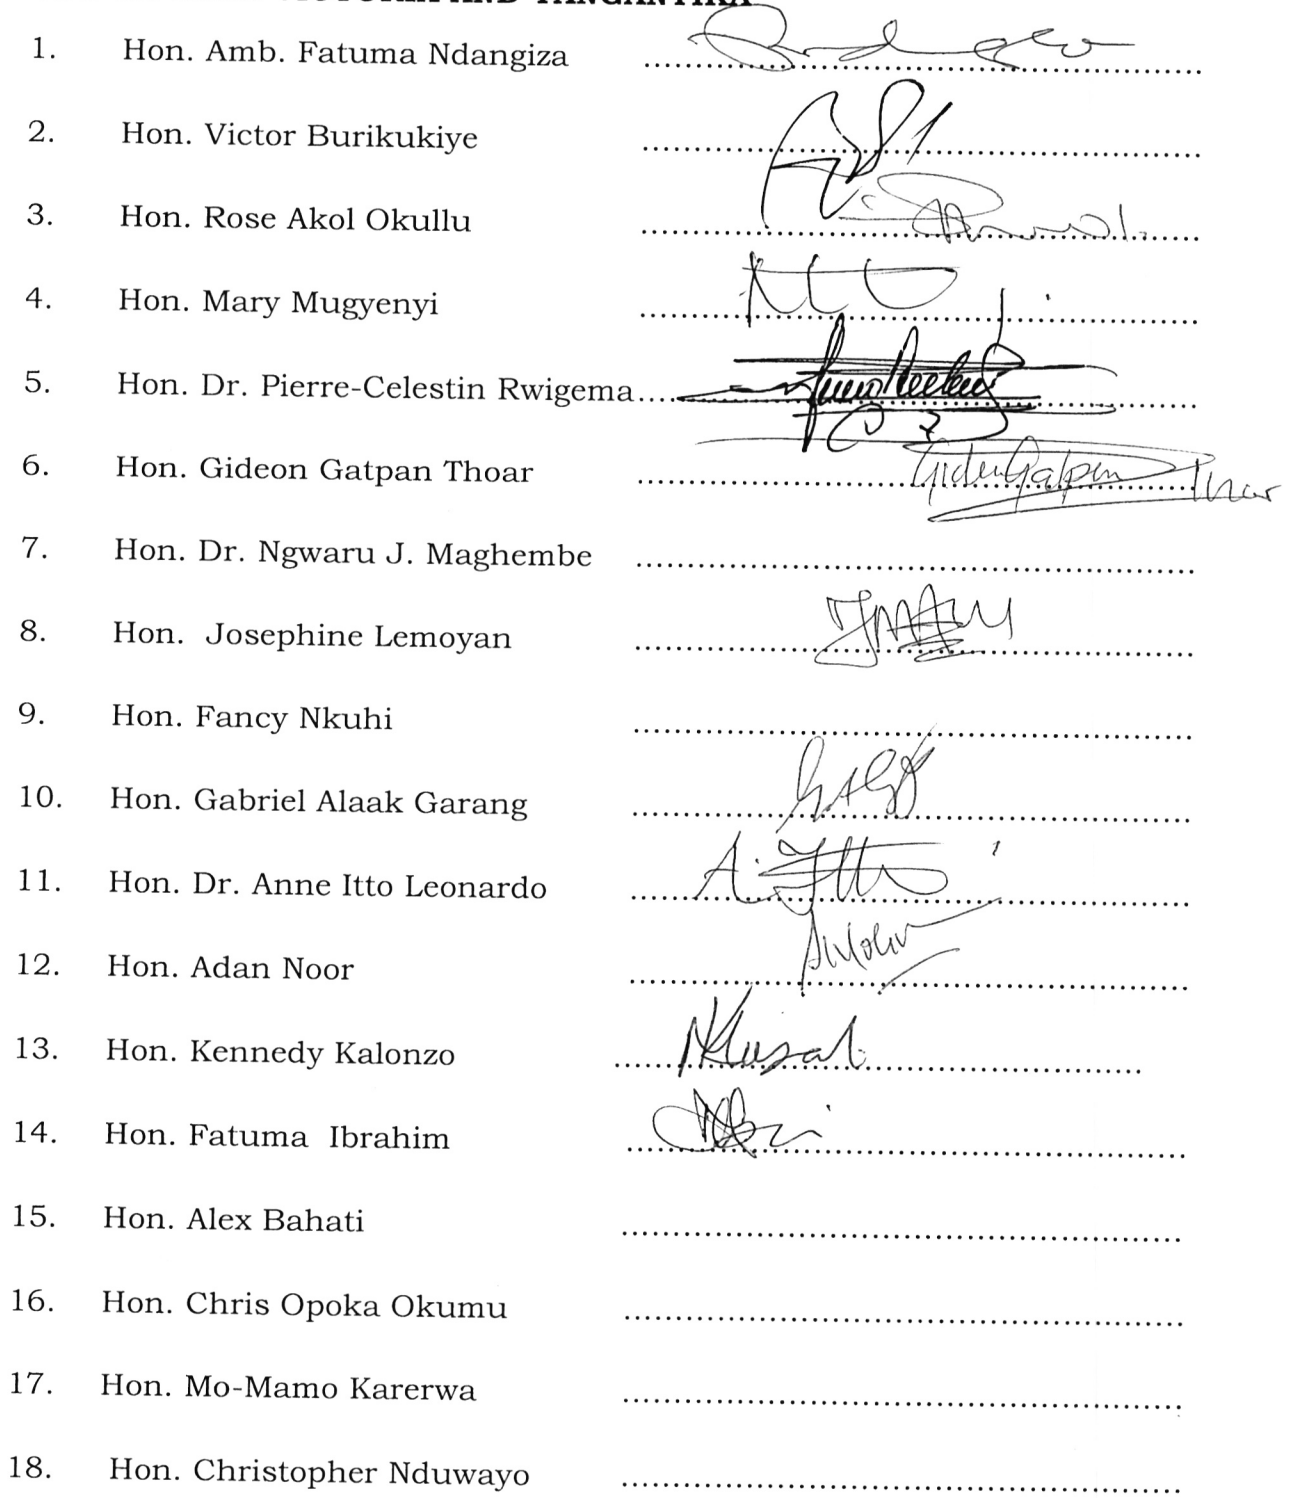 1. Hon. Amb. Fatuma Ndangiza
2. Hon. Victor Burikukiye
3. Hon. Rose Akol Okullu
4. Hon. Mary Mugyenyi
5. Hon. Dr. Pierre-Celestin Rwigema
6. Hon. Gideon Gatpan Thoar Gideon Gatpan Thoar
7. Hon. Dr. Ngwaru J. Maghembe
8. Hon. Josephine Lemoyan
9. Hon. Fancy Nkuhi
10. Hon. Gabriel Alaak Garang
11. Hon. Dr. Anne Itto Leonardo A. Itto
12. Hon. Adan Noor
13. Hon. Kennedy Kalonzo
14. Hon. Fatuma Ibrahim
15. Hon. Alex Bahati
16. Hon. Chris Opoka Okumu
17. Hon. Mo-Mamo Karerwa
18. Hon. Christopher Nduwayo